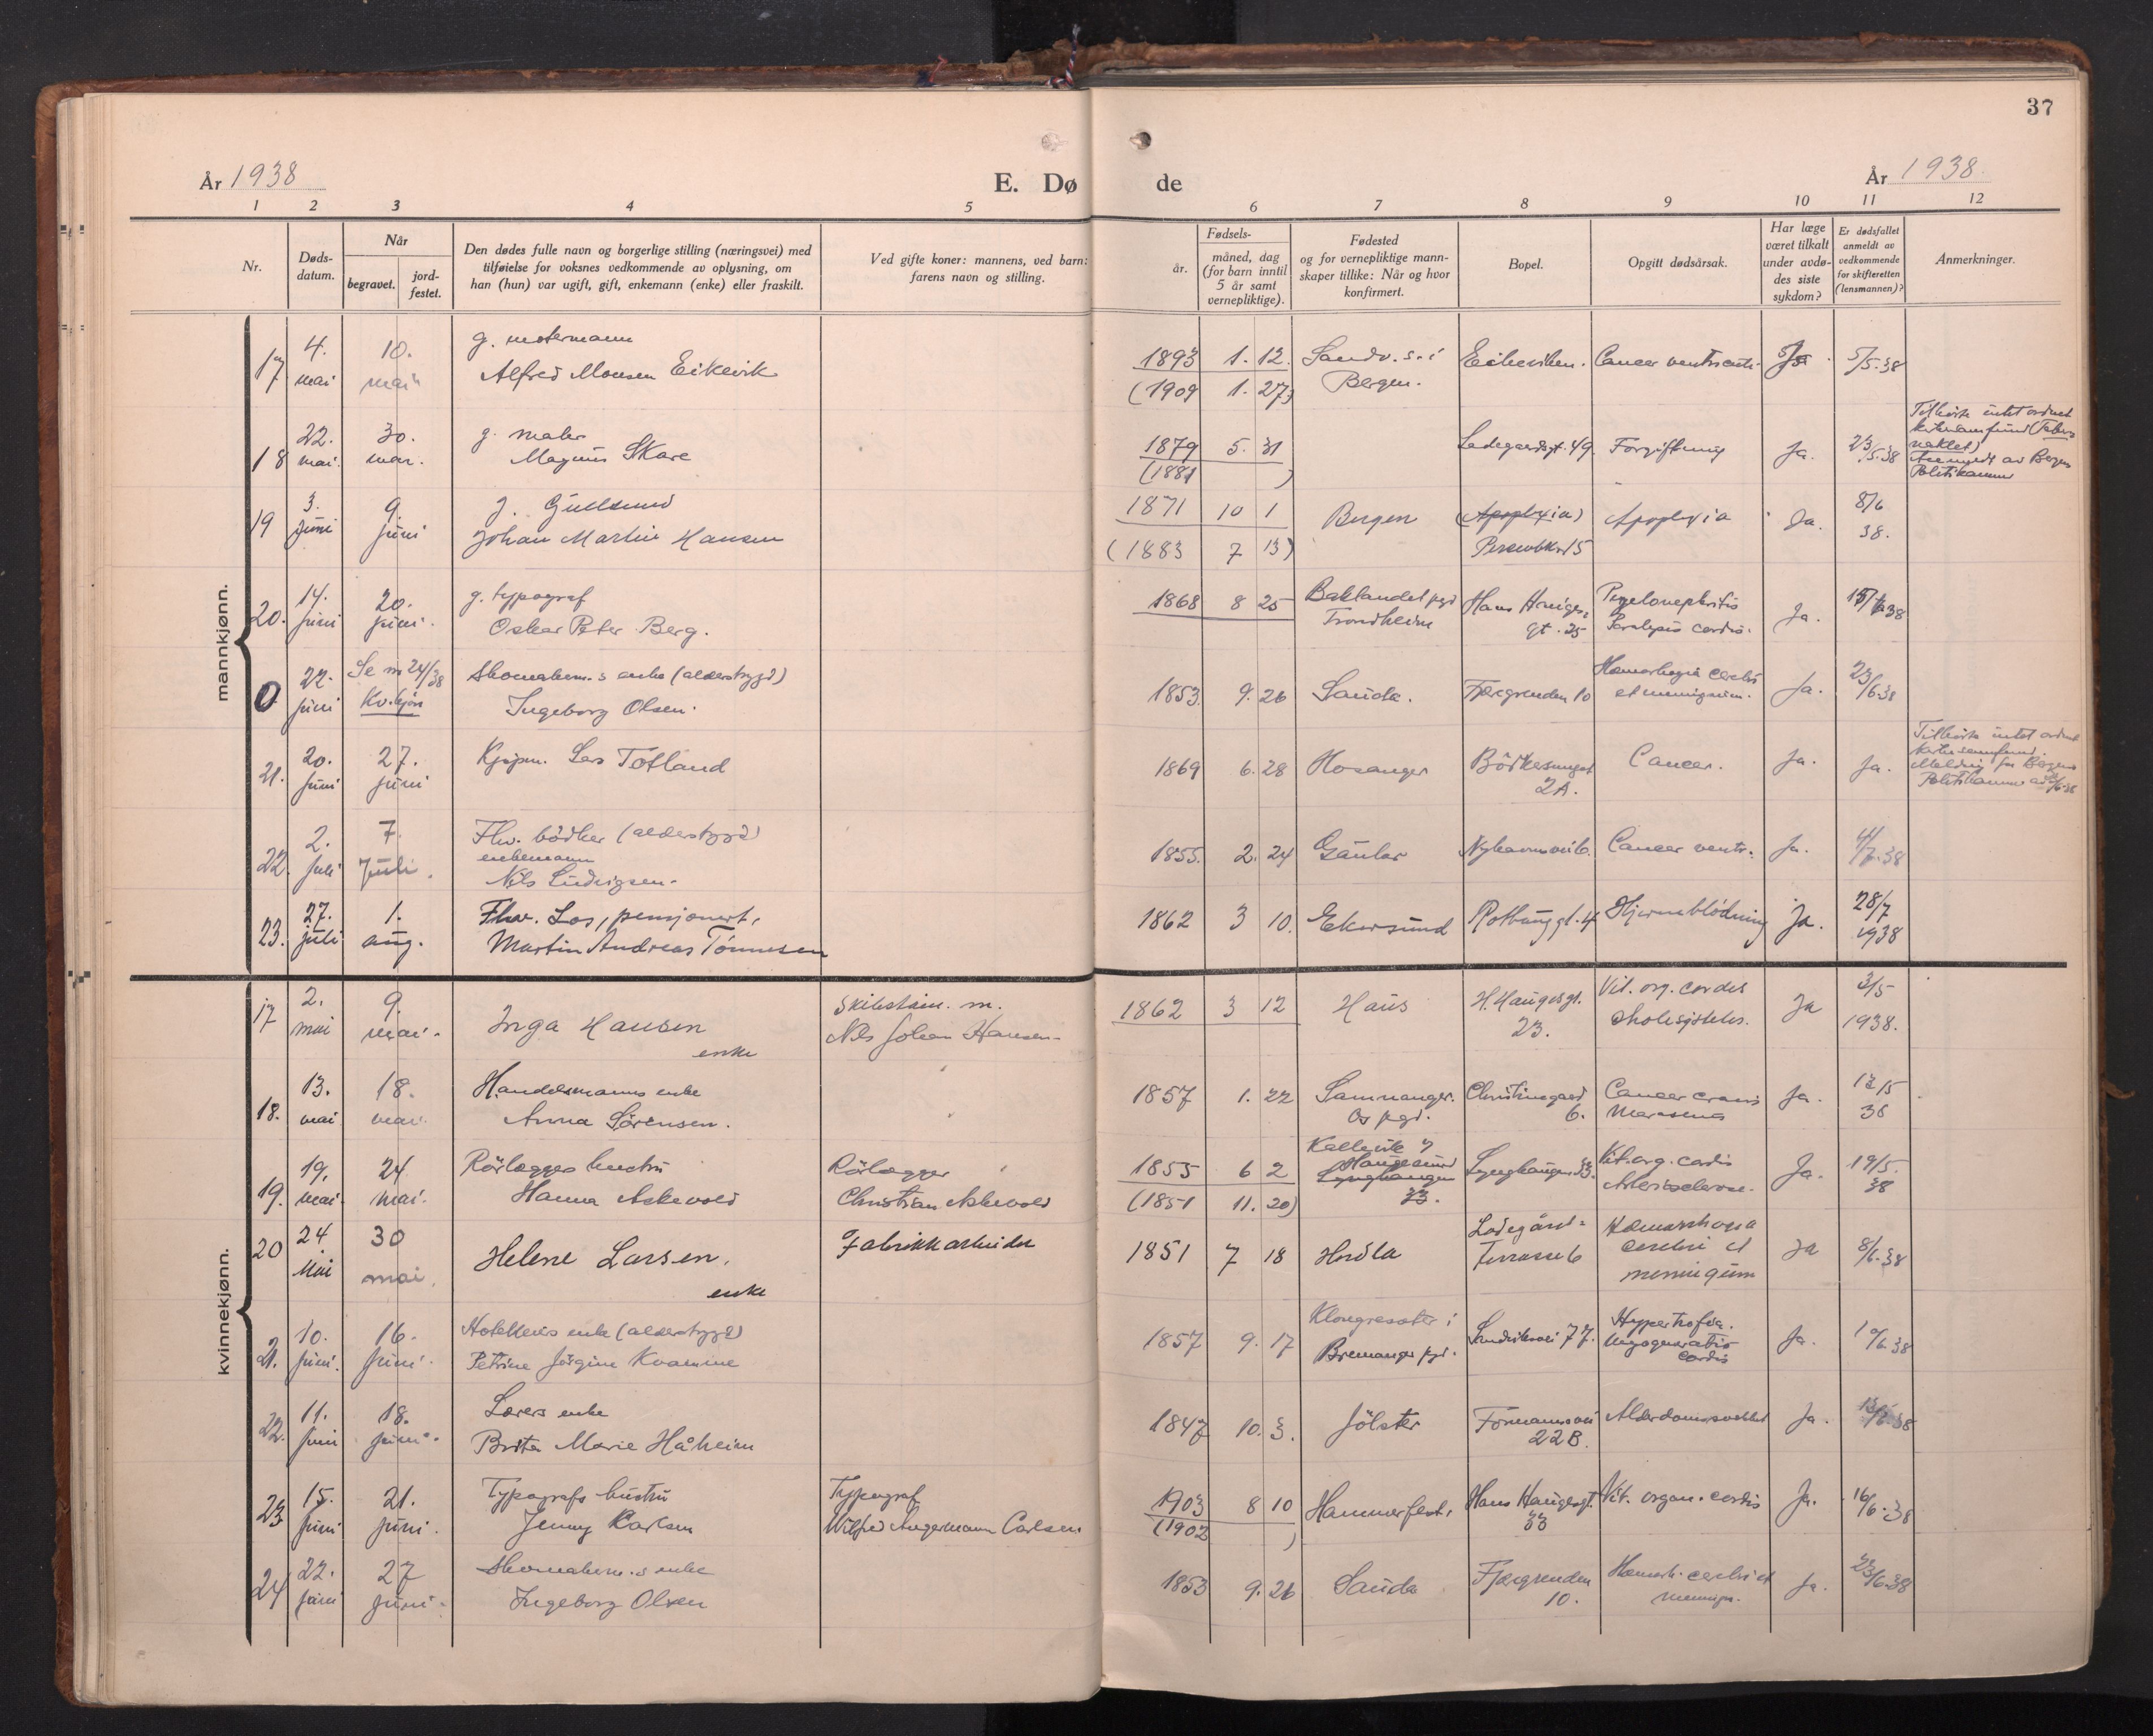 37
År 1938
E. Dø
de
År 1938.
1 2 3 4 5 6 7 8 9 10 11 12
Nr.
Døds-
datum.
Når
begravet.
jord-
festet.
Den dødes fulle navn og borgerlige stilling (næringsvei) med
tilføielse for voksnes vedkommende av oplysning, om
han (hun) var ugift, gift, enkemann (enke) eller fraskilt.
Ved gifte koner: mannens, ved barn:
farens navn og stilling.
Fødsels-
år.
måned, dag
(for barn inntil
5 år samt
vernepliktige).
Fødested
og for vernepliktige mann-
skaper tillike: Når og hvor
konfirmert.
Bopel.
Opgitt dødsårsak.
Har læge
været tilkalt
under avdø-
des siste
sykdom?
Er dødsfallet
anmeldt av
vedkommende
for skifteretten
(lensmannen)?
Anmerkninger.
mannkjønn.
17 4. mai 10. mai
g. motormann
Alfred Monsen Eikevik
1893 1. 12. Sandv. s. i
(1909 1. 27) Bergen.
5/5.38
18 22. mai. 30. mai.
g. maler
Magnus Skare
1879 5. 31 Ladegaardsgt. 49 Forgiftning Ja. 23/5.38
(1881 )
av Bergen
Politikammer
19 3. juni 9. juni
Johan Martin Hansen
1871 10 1 Bergen (Apoplexia) Apoplexia Ja. 8/6 38.
(1883 7 13) 15
20. 14. juni 20. juni.
g. typograf
Oskar Peter Berg.
1868 8 25 Baklandet pgd
Trondheim
gt. 25
Pyelonephritis
Paralysis cordis.
Ja.
0 22. juni Se nr 24/38
Kv.kjøn
Skomakerm.s enke (alderstrygd)
Ingeborg Olsen.
1853. 9. 26 Sauda. Fjæregrenden 10 Ja. 23/6.38
21. 20. juni 27. juni
Kjøpm. Lars Totland
1869 6. 28 Hosanger 2A. Cancer. Ja. Ja.
Politikammer
22. 2. juli 7. juli.
Fhv. bödker (alderstrygd)
enkemann
Nils Ludvigsen.
1855. 2. 24 Gaular Cancer ventr. Ja. 4/7.38
23. 27. juli 1. aug.
Fhv. Los, pensjonert,
Martin Andreas Tönnesen
1862 3 10. Ekersund Hjerneblödning Ja. 28/7 1938
kvinnekjønn.
17 2. mai 9. mai.
Inga Hansen
enke
Nils Johan Hansen.
1862 3 12 Haus H. Haugesgt.
23.
Vit. org. cordis
Ja 3/5 1938.
18. 13. mai 18. mai.
Handelsmanns enke
Anna Sörensen.
1857 1. 22 Samnanger.
Os pgd.
Christinegaard
6.
Ja.
19. 19. mai. 24 mai.
Rörlæggers hustru
Hanna Askevold
Rörlægger
Christian Askevold
1855 6 2
(1851 11. 20)
Haugesund
Lynghaugen 33.
Vit. org. cordis
Ja. 19/5. 38
20 24 Mai 30 mai.
Helene Larsen,
enke
Fabrikkarbeider
1851 7 18 Herdla
Ladegård-
Terrasse 6
Hæmorrhagia
cerebri et
meningum
Ja 8/6.38
21. 10. juni. 16. juni.
Hotelleiers enke (alderstrygd)
Petrine Jörgine Kvamme
1857 9. 17
Bremanger pgd.
Sandviksvei 77.
Hypertrofia.
cordis
Ja.
22. 11. juni 18. juni.
Lærers enke
Brita Marie Håheim
1847 10. 3. Jölster
Formannsvei
22B.
Ja. 13/6.38
23 15. juni 21. juni.
Typografs hustru
Jenny Karlsen
Typograf
Wilfred Angermann Carlsen
1903 8 10 Hammerfest.
(1902 )
Hans Haugesgt.
33
Vit. organ. cordis
Ja. 16/6.38
24 22. juni 27 juni.
Skomakerm.s enke
Ingeborg Olsen
1853 9. 26 Sauda
Fjæregrenden
10.
Hæmorh. cerebri et
Ja. 23/6.38